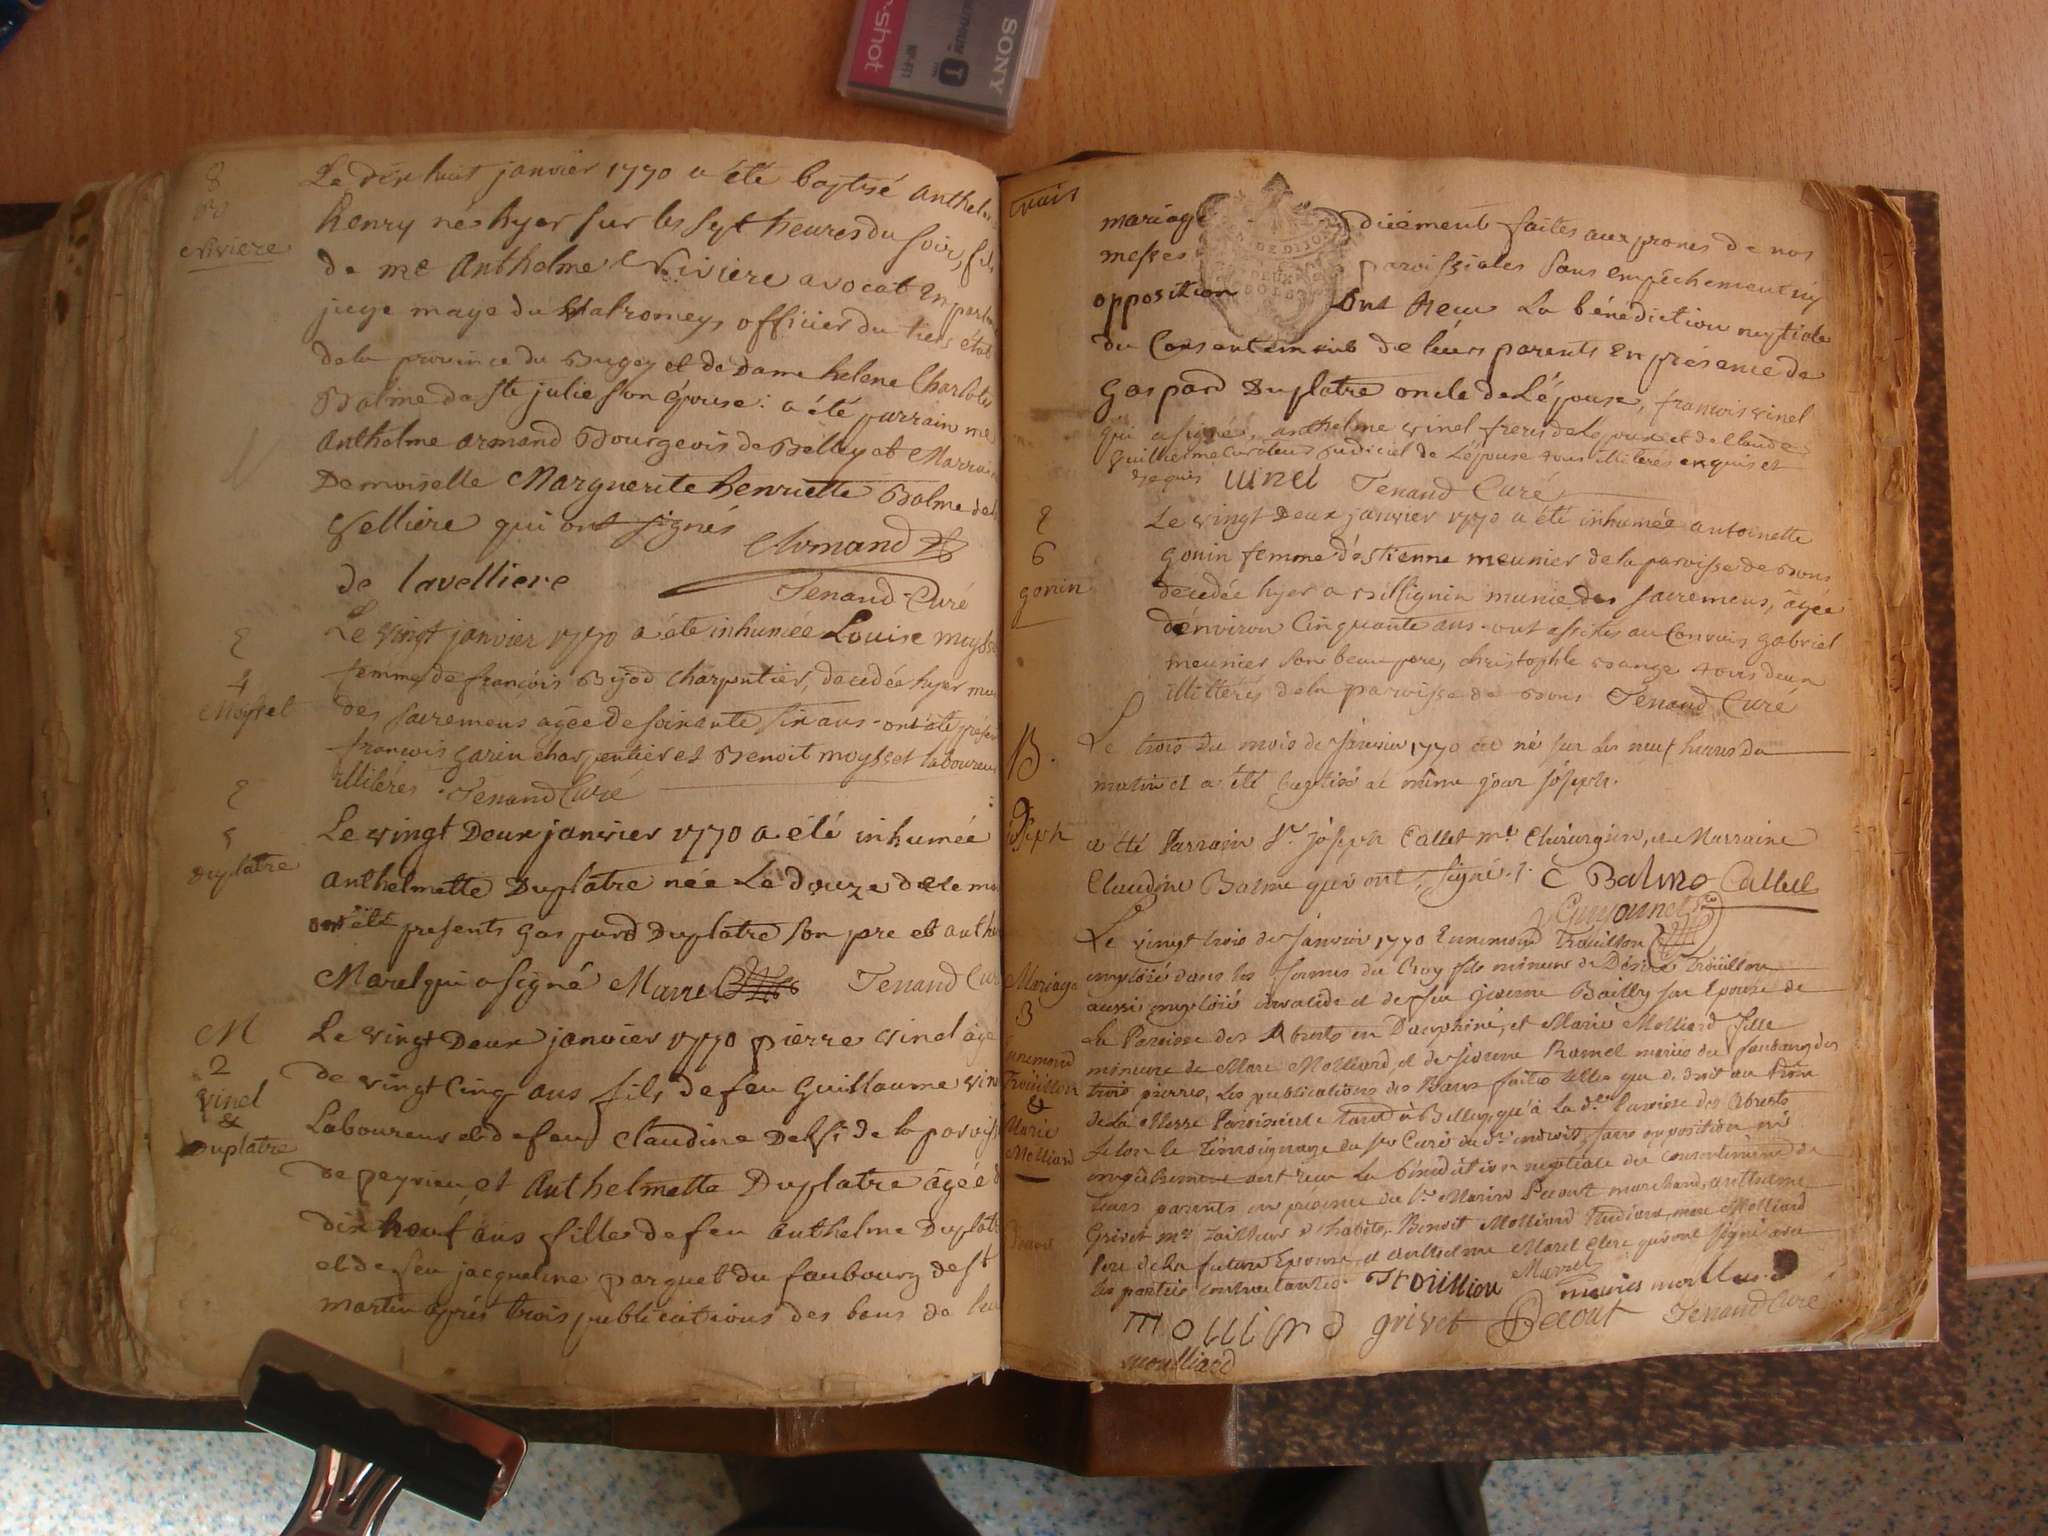 SONY
8
Riviere
Le dix huit janvier 1770 a été baptisé anthel
henry né hyer sur les sept heures du soir, fils
de me Anthelme Riviere avocat en parlem
juge mage du Valromey, officier du tiers état
de la province du Bugey et de Dame helene Charlote
Balme de ste julie son épouse: a été parrain me
Anthelme armand Bourgeois de Belley et Marrain
Demoiselle Marguerite henriette Balme de
Velliere qui ont signés Armand
de lavelliere Tenand Curé
4
Moysset
Le vingt janvier 1770 a été inhumée Louise moyss
femme de francois Bijod charpentier, decedée hyer mu
des sacremens agée de soixante six ans - ont été présen
francois garin charpentier et Benoit moysset laboureur
illiterés - Tenand Curé
5
Duplatre
Le vingt Deux janvier 1770 a été inhumée
Anthelmette Duplatre née Le douze de ce mo
ont été presents gaspard Duplatre son pre et anth
Marel qui a signé Marrel Tenand Cur
M
2
vinel
&
Duplatre
Le vingt Deux janvier 1770 pierre vinel age
de vingt Cinq ans fils de feu Guillaume vin
Laboureur et de feue Claudine de la paroiss
de peyrieu, et Anthelmette Duplatre agée d
dix neuf ans fille de feu anthelme Duplat
et de feu jacqueline parquet du faubourg de st
martin après trois publications des bans de leu
trois
mariage duement faites aux prones de nos
messes paroissiales sans empêchement ny
opposition ont reçu La bénédiction nuptiale
du Consentement de leurs parents en présence de
gaspard Duplatre oncle de L'épouse, francois vinel
qui a signé, anthelme vinel freres de L'epoux et de Claude
guillerme Curateur judiciel de L'épouse tous illiterés enquis et
requis uinel Tenand Curé
6
gonin
Le vingt Deux janvier 1770 a été inhumée antoinette
gonin femme d'estienne meunier de la paroisse de Bons
decedée hyer a Billignin munie des sacremens, agée
d'environ Cinquante ans - ont assistés au Convois gabriel
meunier son beau pere, christophle mange tous deux
illitterés de la paroisse de Bons Tenand Curé
B.
joseph
Le trois du mois de Janvier 1770 est né sur les neuf heures du
matin et a été baptisé ce même jour joseph.
a été Parrain Sr. joseph Callet me Chirurgien, et Marraine
Claudine Balme qui ont signé. C Balme Callet
Guyonnet
Mariage
3
Ennemond
Troüillon
&
Marie
Molliard
Le vingt trois de Janvier 1770 Ennemond Troüillon
emploié dans les fermes du Roy fils mineur de Désiré Troüillon
aussi emploié invalide et de feu jeanne Bailly son Epouse de
la Paroisse des Abrets en Dauphiné, et Marie Molliard fille
mineure de Marc Molliard, et de jeanne Ramel mariés du faubourg des
trois pierres, Les publications des Bans faites telles que de droit au Prône
de La Messe Paroissiale tant à Belley, qu'à la de. Paroisse des Abrets
selon le Témoignage du sr Curé du dt. endroit, sans opposition ni
empêchement ont reçu La bénédiction nuptiale du consentement de
leurs parents en présence du Sr. Marin Decout marchand, anthelme
Grivet me Tailleur d'habits, Benoit Molliard Etudiant, marc Molliard
Pere de la future Epouse, et anthelme Marel Clerc qui ont signé avec
les parties contractantes. Trouillion Marrel maries molliard
molliard grivet Decout Tenand Curé
moulliard